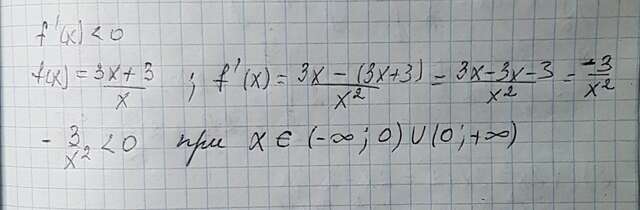 f'(x) < 0
f(x) = (3x + 3)/x ; f'(x) = (3x − (3x+3))/x² = (3x−3x−3)/x² = −3/x²
− 3/x² < 0 при x ∈ (−∞; 0) ∪ (0; +∞)